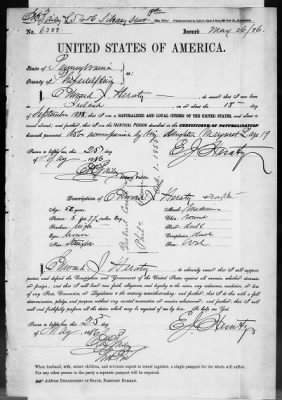 No. 6388 Issued May 26/86.
UNITED STATES OF AMERICA.
State of Pennsylvania
County of Philadelphia } ss:
I, Edward J. Heraty, do swear that I was born
in Ireland, on or about the 18 day
of September 1838, that I am a NATURALIZED AND LOYAL CITIZEN OF THE UNITED STATES, and about to
travel abroad; and further, that I am the IDENTICAL PERSON described in the CERTIFICATE OF NATURALIZATION
herewith presented, to be accompanied by my daughter Margaret L age 19
Sworn to before me, this 25 day
of May 1886
E J Heraty
Notary Public.
Description of Edward J. Heraty
Age: years
Stature: 5 feet inches, Eng.
Forehead: high
Eyes:
Nose: Straight
Mouth: medium
Chin: round
Hair: dark
Complexion: dark
Face: Oval
I, Edward J. Heraty, do solemnly swear that I will support,
protect, and defend the Constitution and Government of the United States against all enemies, whether domestic
or foreign; and that I will bear true faith, allegiance, and loyalty to the same, any ordinance, resolution, or law
of any State, Convention, or Legislature to the contrary notwithstanding; and further, that I do this with a full
determination, pledge, and purpose, without any mental reservation or evasion whatsoever; and further, that I will
well and faithfully perform all the duties which may be required of me by law. So help me God.
Sworn to before me, this 25
of May 1886
E J Heraty
When husband, wife, minor children, and servants expect to travel together, a single passport for the whole will suffice.
For any other person in the party a separate passport will be required.
Address DEPARTMENT OF STATE, PASSPORT BUREAU.